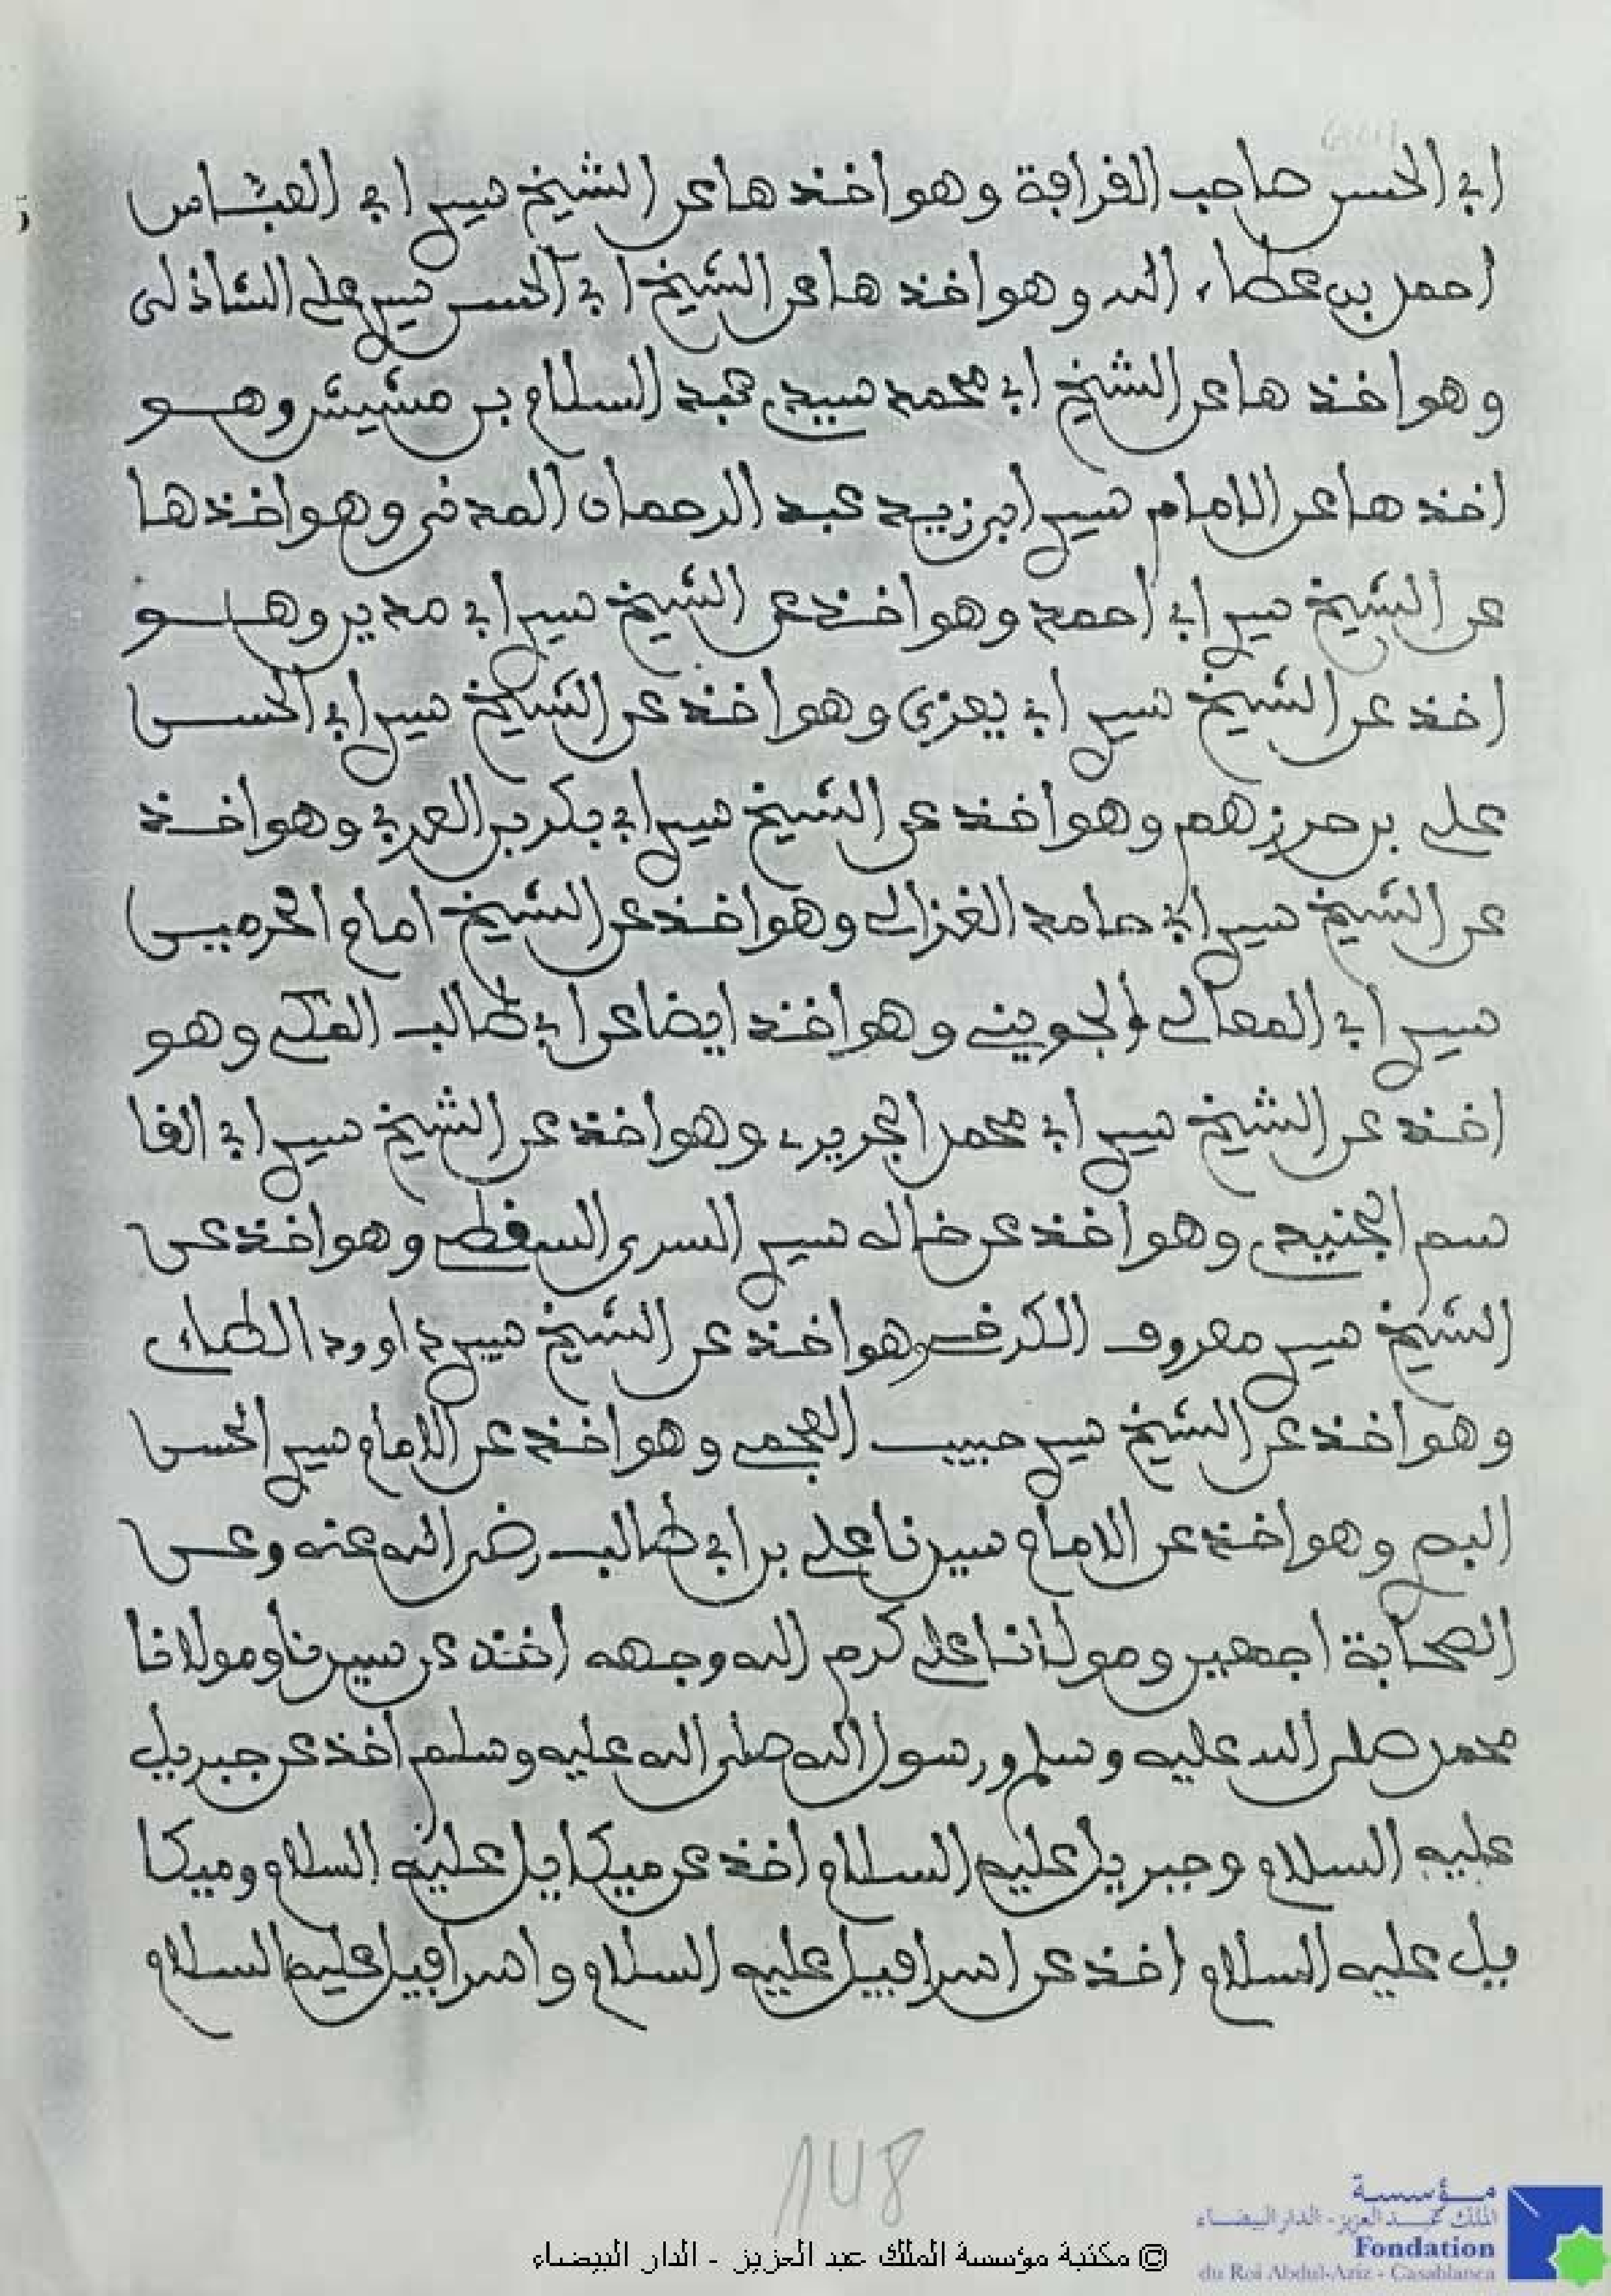 ابي الحسن صاحب القرافة وهو اخذها عن الشيخ سيدي ابي العباس
احمد بن عطاء الله وهو اخذها عن الشيخ ابي الحسن سيدي علي الشاذلي
وهو اخذها عن الشيخ ابي محمد سيدي عبد السلام بن مشيش وهو
اخذها عن الامام سيدي ابن زيد عبد الرحمان المدني وهو اخذها
عن الشيخ سيدي ابي احمد وهو اخذ عن الشيخ سيدي ابي مدين وهو
اخذ عن الشيخ سيدي ابي يعزى وهو اخذ عن الشيخ سيدي ابي الحسن
علي بن حرزهم وهو اخذ عن الشيخ سيدي ابي بكر بن العربي وهو اخذ
عن الشيخ سيدي ابي حامد الغزالي وهو اخذ عن الشيخ امام الحرمين
سيدي ابي المعالي الجويني وهو اخذ ايضا عن ابي طالب المكي وهو
اخذ عن الشيخ سيدي ابي محمد الجريري وهو اخذ عن الشيخ سيدي ابي القا
سم الجنيدي وهو اخذ عن خاله سيدي السري السقطي وهو اخذ عن
الشيخ سيدي معروف الكرخي وهو اخذ عن الشيخ سيدي داوود الطاءي
وهو اخذ عن الشيخ سيدي حبيب العجمي وهو اخذ عن الامام سيدي الحسن
البصري وهو اخذ عن الامام سيدنا علي بن ابي طالب رضي الله عنه وعن
الصحابة اجمعين ومولانا علي كرم الله وجهه اخذ عن سيدنا ومولانا
محمد صلى الله عليه وسلم ورسول الله صلى الله عليه وسلم اخذ عن جبريل
عليه السلام وجبريل عليه السلام اخذ عن ميكايل عليه السلام وميكا
يل عليه السلام اخذ عن اسرافيل عليه السلام واسرافيل عليه السلام
148
مؤسسة
الملك عبد العزيز - الدار البيضاء
Fondation
du Roi Abdul-Aziz - Casablanca
© مكتبة مؤسسة الملك عبد العزيز - الدار البيضاء